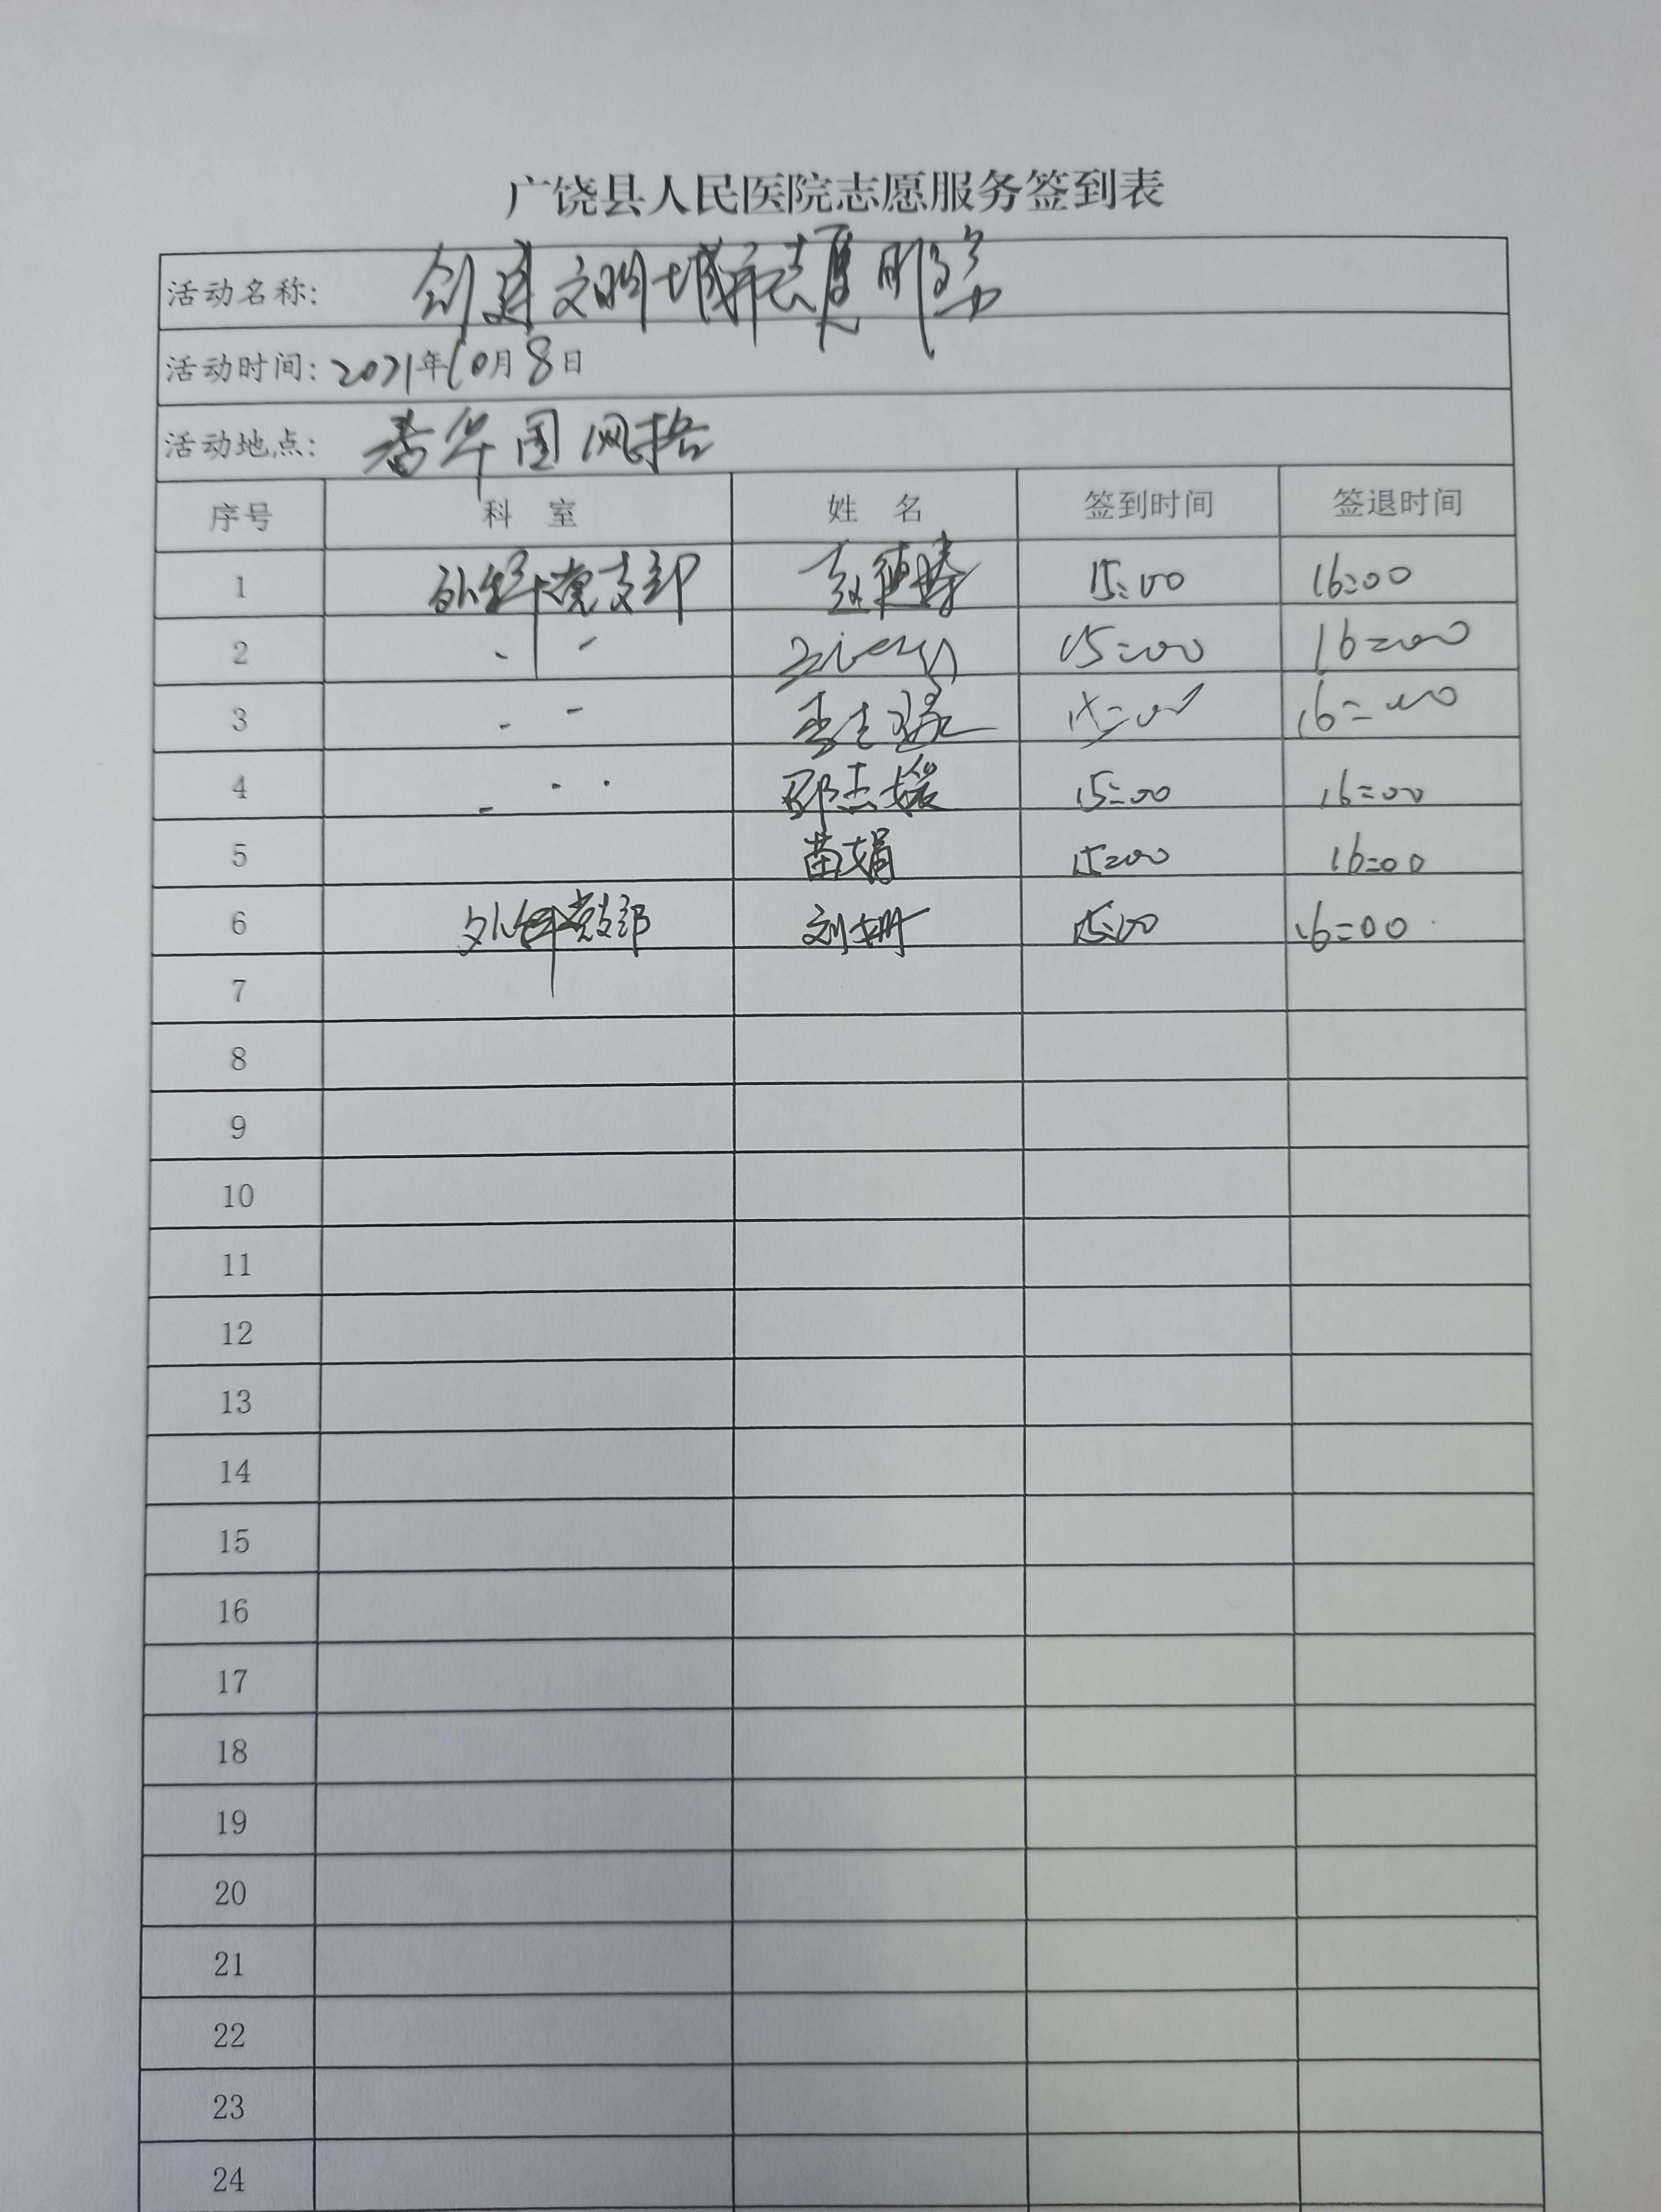 广饶县人民医院志愿服务签到表
活动名称: 创建文明城市志愿服务
活动时间: 2021年10月8日
活动地点: 香华国风格
序号 科 室 姓 名 签到时间 签退时间
1 外科党支部 15:00 16:00
2 15:00 16:00
3 15:00 16:00
4 邵杰媛 15:00 16:00
5 苗娟 15:00 16:00
6 外科党支部 刘姗 15:00 16:00
7
8
9
10
11
12
13
14
15
16
17
18
19
20
21
22
23
24